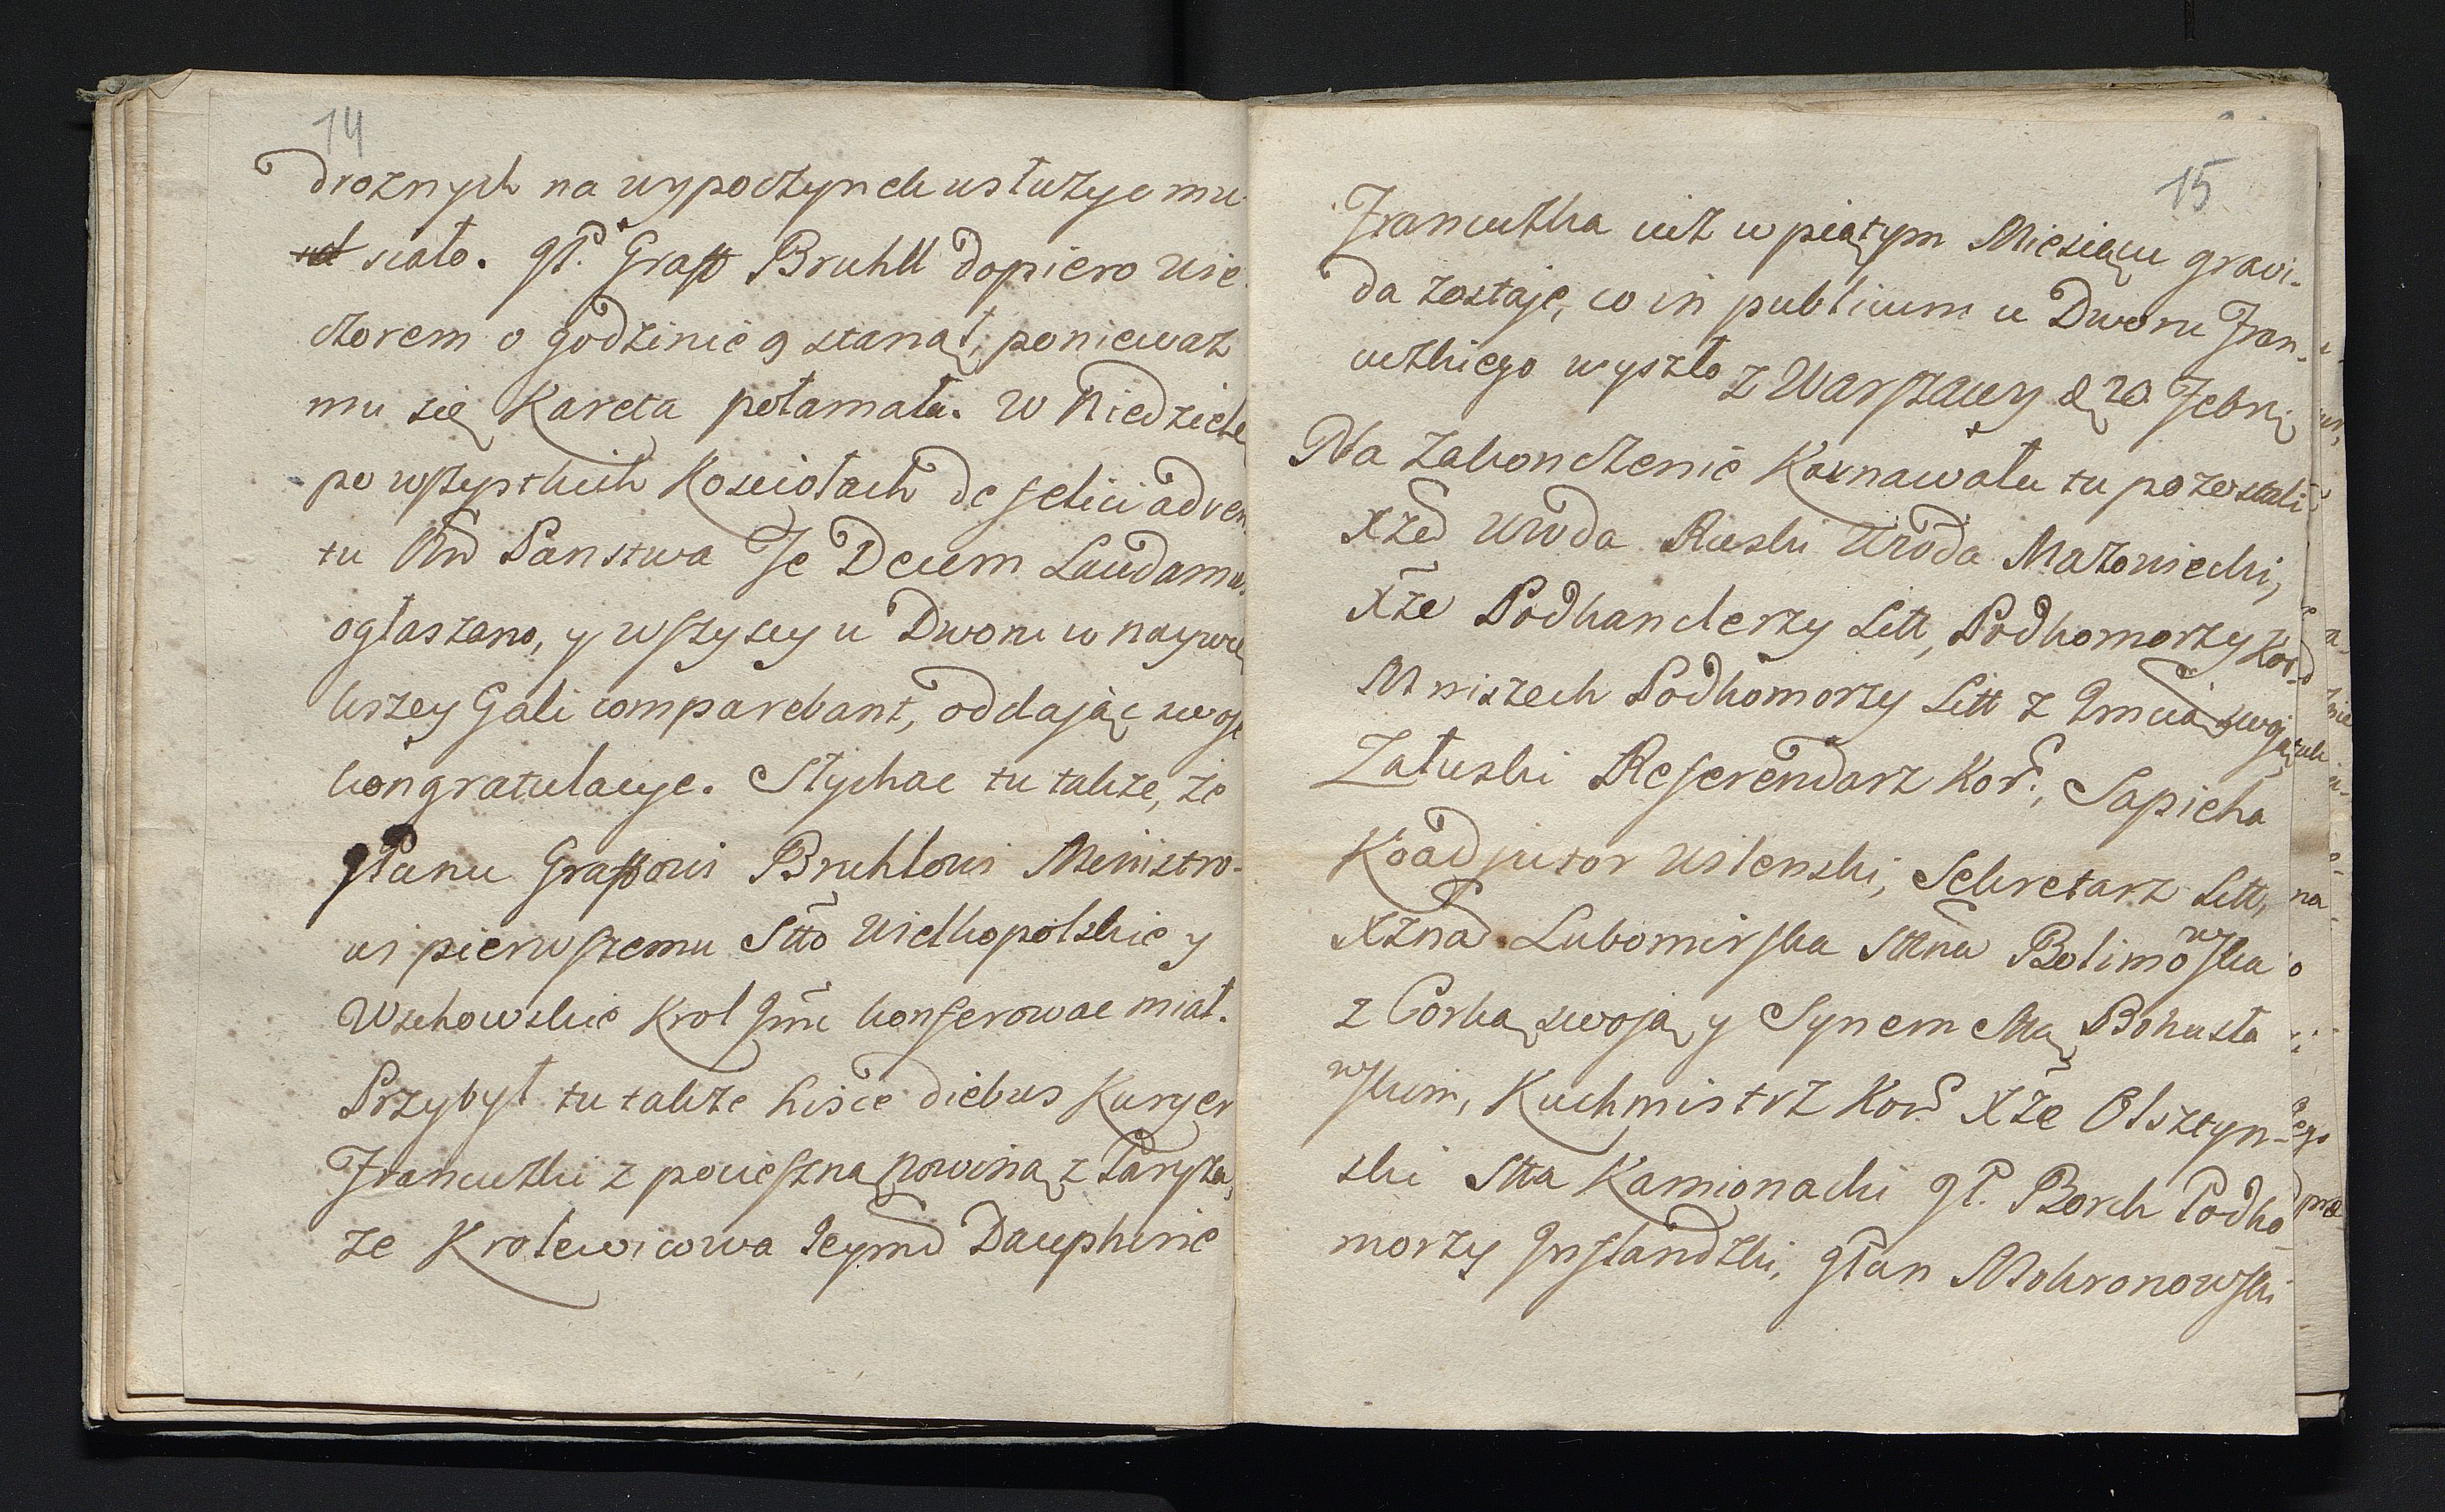 14
drożnych na wypoczynek usłużyć mu
siało. JP. Graff Bruhll dopiero wie
czorem o godzinie 9 stanął, poniewaz
mu się Kareta połamała. W Niedzielę
po wszystkich Kosciołach de felici adven
tu Państwa Te Deum Laudamus
ogłaszano, y wszyscy u Dworu w naywię
kszey Gali comparebant, oddając swoje
kongratulacye. Słychac tu takze, że
JPanu Graffowi Bruhlowi Ministro-
wi pierwszemu Sttõ Wielkopolskie y
Wschowskie Krol Jmć konferowac miał.
Przybył tu takze hisce diebus Kuryer
Francuzki z pocieszną nowiną z Paryża,
że Krolewicowa Jeymć Dauphine
15
Francuzka iuż w piątym Miesiącu gravi-
da zostaje, co in publicum u Dworu Fran-
cuzkiego wyszło z Warszawy d 20. Febr
Na zakonczenie Karnawału tu pozostali
XZe Wwda Ruski Wwoda Mazowiecki,
XZe Podkanclerzy Litt, Podkomorzy Kor.
Mniszech Podkomorzy Litt z Jmcią swoją
Załuski Referendarz Kor., Sapieha
Koadjutor Wilenski, Sekretarz Litt,
XZna Lubomirska Sttna Bolimowska
z Corką swoją y Synem Sttą Bohusła
wskim, Kuchmistrz Kor. XZe Olsztyn-
ski Stta Kamionacki JP. Borch Podko-
morzy Inflandzki, JPan Mokronowski